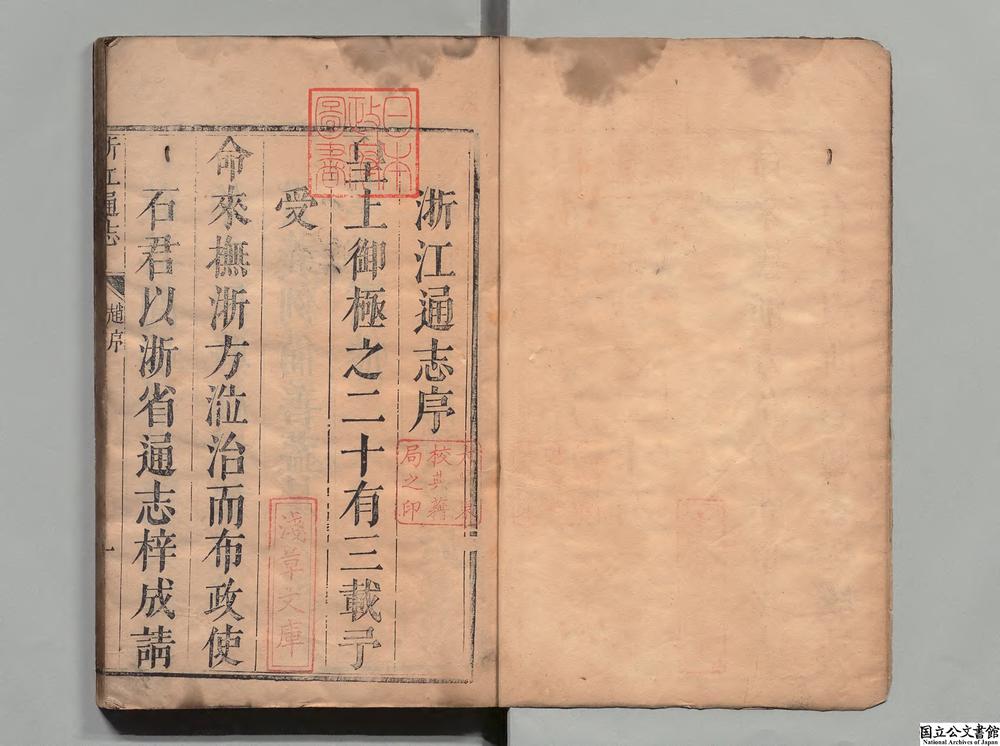 浙江通志序
皇上御極之二十有三載予
受
命來撫浙方涖治而布政使
石君以浙省通志梓成請
浙江通志
趙序
一
日本
政府
圖書
淺草文庫
校典籍
局之印
国立公文書館
National Archives of Japan